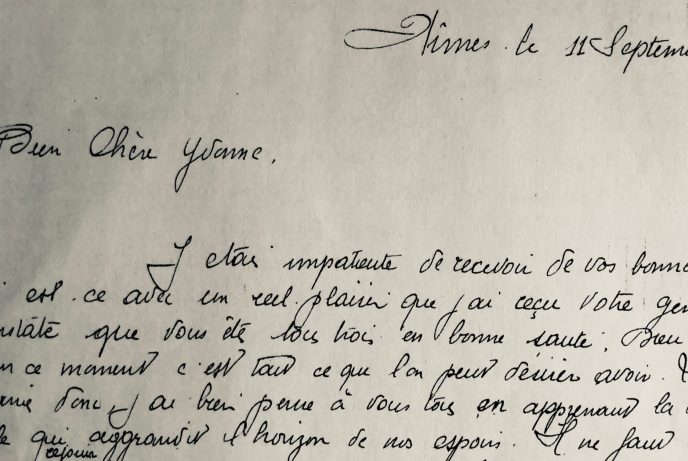 Nîmes le 11 Septem
Bien Chère Yvonne,
J'étais impatiente de recevoir de vos bonne
est-ce avec un reel plaisir que j'ai reçu votre gen
que vous êtes tous trois en bonne santé. Dieu
ce moment c'est tout ce que l'on peut désirer avoir.
donc, j'ai bien pensé à vous tous en apprenant la
qui aggrandit l'horizon de nos espoirs. Il ne faut